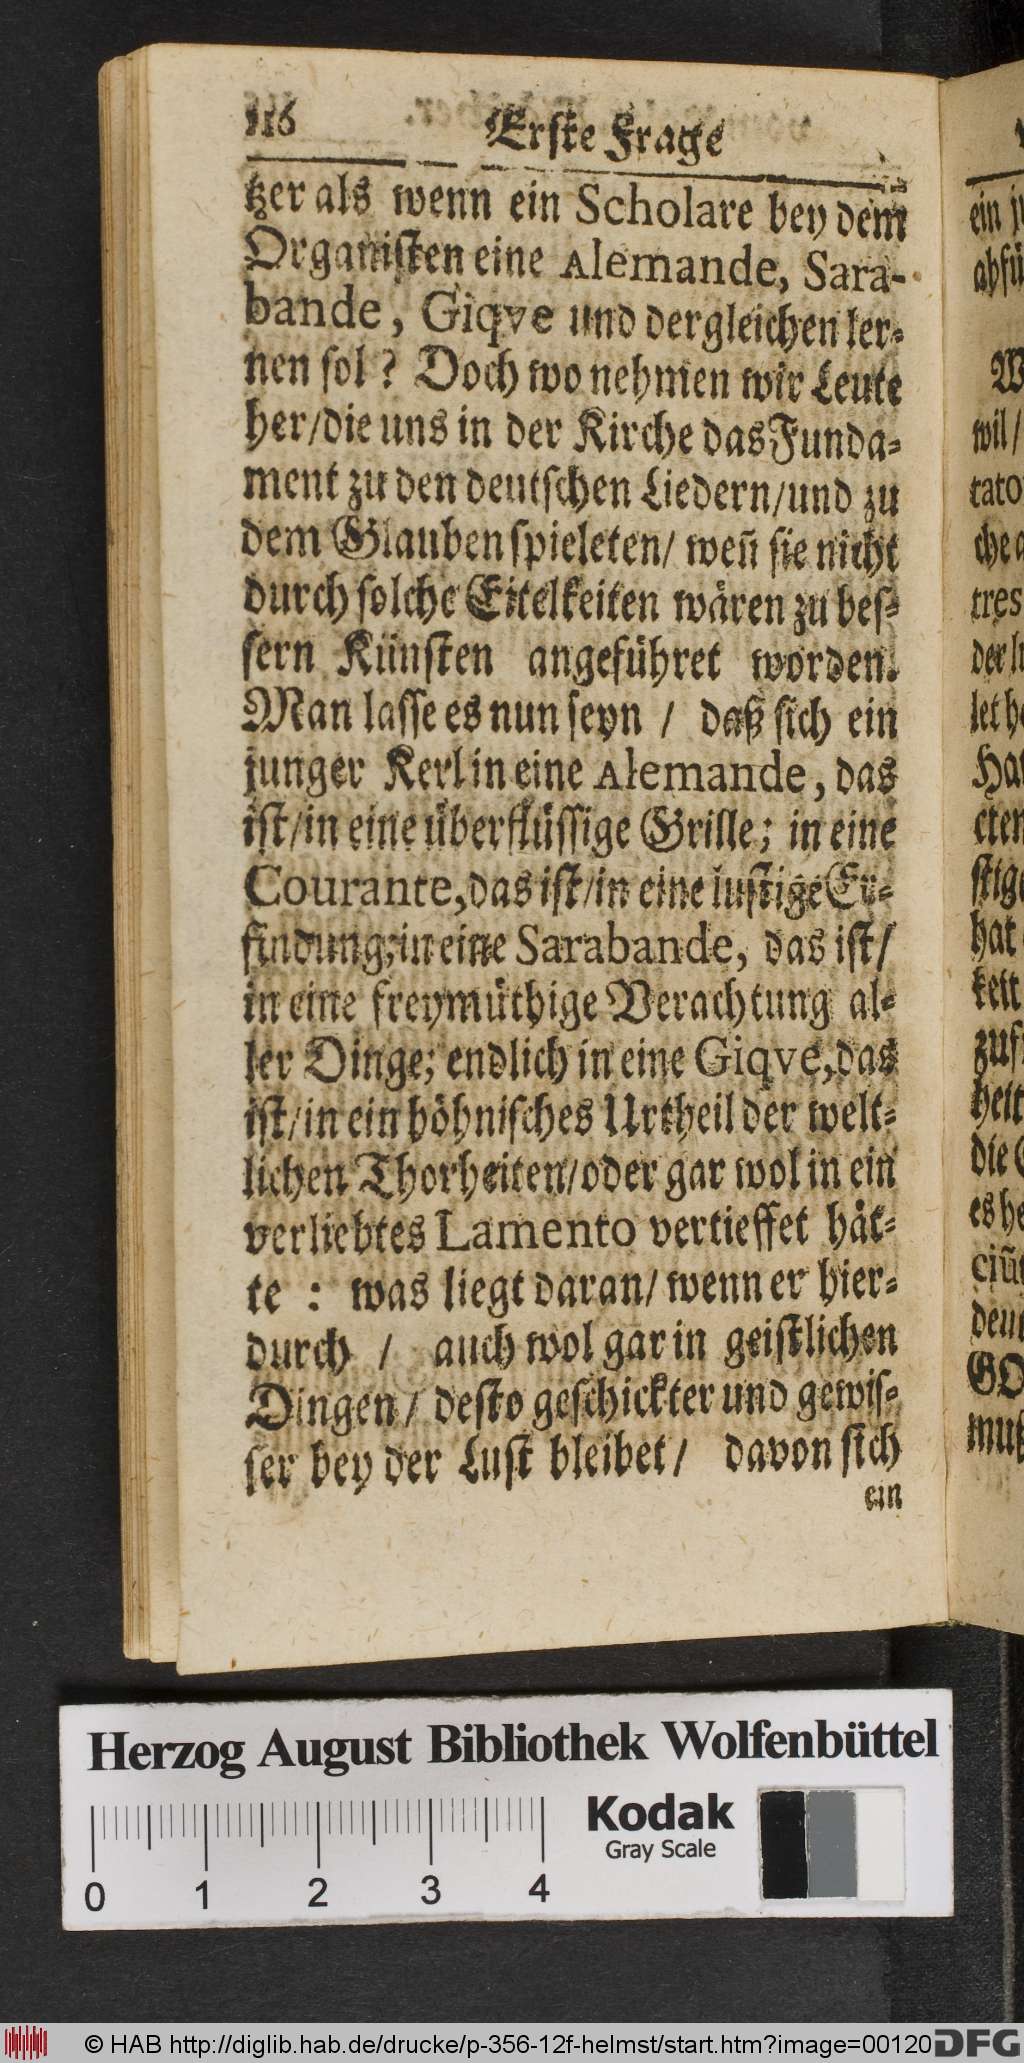 116 Erste Frage
tzer als wenn ein Scholare bey dem
Organisten eine Alemande, Sara-
bande, Giqve und dergleichen ler-
nen sol? Doch wo nehmen wir Leute
her/die uns in der Kirche das Funda-
ment zu den deutschen Liedern/und zu
dem Glauben spieleten/ weñ sie nicht
durch solche Eitelkeiten wären zu bes-
sern Künsten angeführet worden.
Man lasse es nun seyn / daß sich ein
junger Kerl in eine Alemande, das
ist/in eine überflüssige Grille; in eine
Courante, das ist/in eine lustige Er-
findung; in eine Sarabande, das ist/
in eine freymüthige Verachtung al-
ler Dinge; endlich in eine Giqve, das
ist/in ein höhnisches Urtheil der welt-
lichen Thorheiten/oder gar wol in ein
verliebtes Lamento vertieffet hät-
te : was liegt daran/ wenn er hier-
durch / auch wol gar in geistlichen
Dingen/ desto geschickter und gewis-
ser bey der Lust bleibet/ davon sich
ein
ein
abfü
W
wil/
rato
che
tres
der
let
Ha
cten
stig
hat
keit
zuf
heit
die
es he
deu
GO
muß
Herzog August Bibliothek Wolfenbüttel
Kodak
Gray Scale
0 1 2 3 4
© HAB http://diglib.hab.de/drucke/p-356-12f-helmst/start.htm?image=00120
DFG